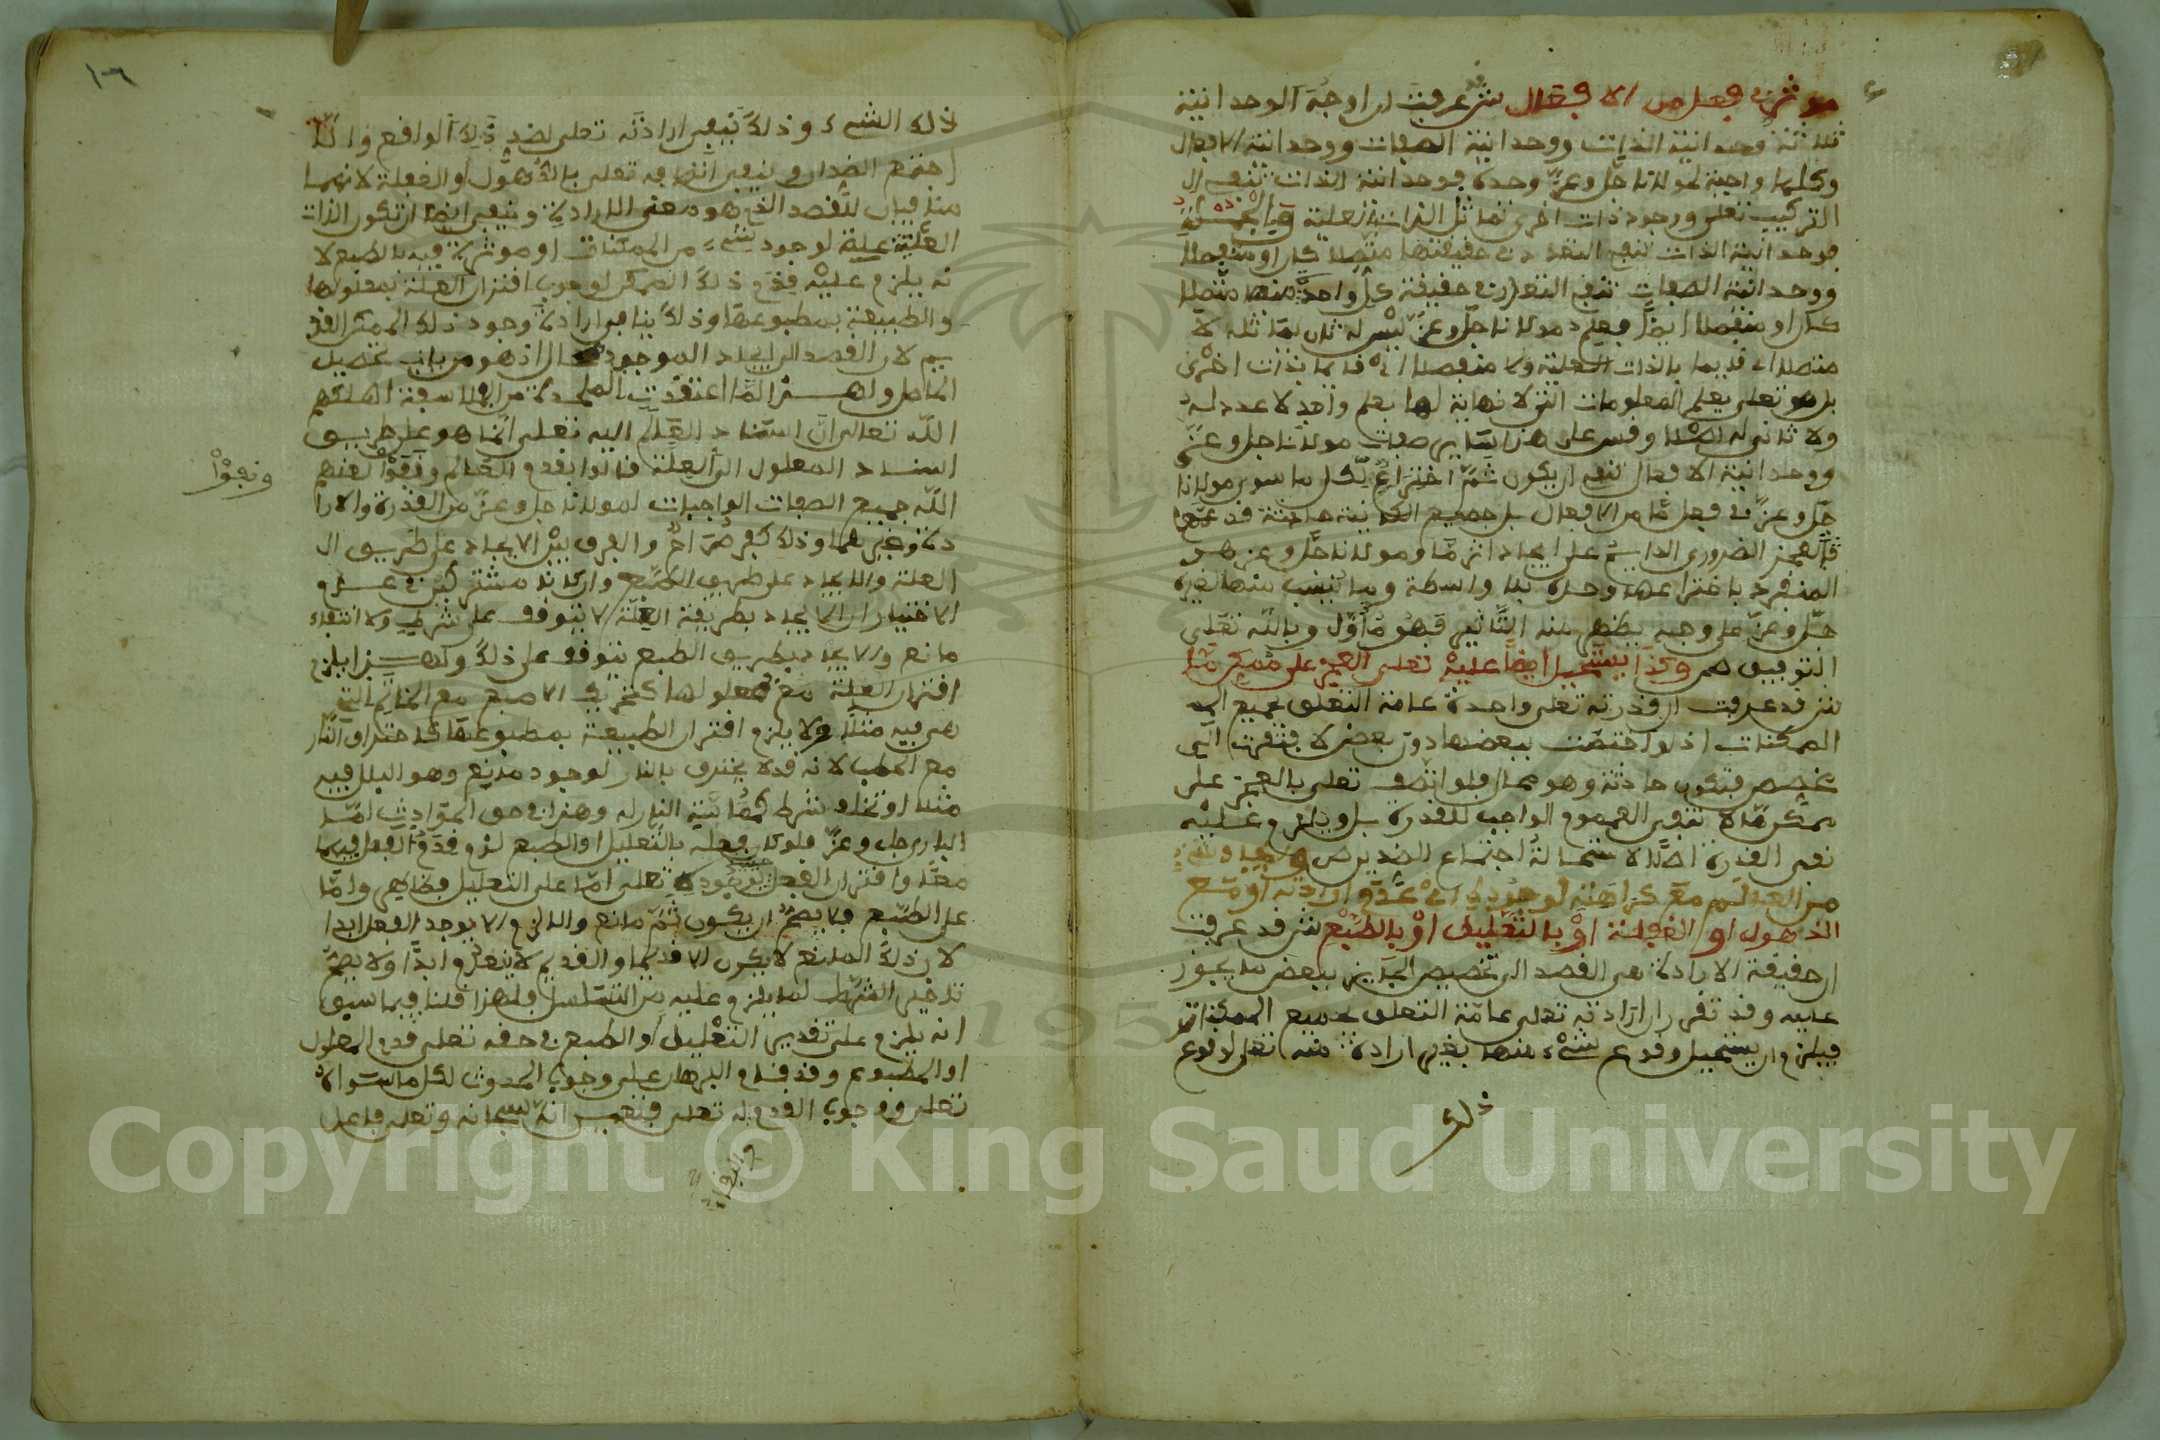 موثر في فعل من الافعال ش قد عرفت ان اوجه الوحدانية
ثلاثة وحدانية الذات ووحدانية الصفات ووحدانية الافعال
وكلها واجبة لمولانا جل وعز وحده فوحدانية الذات تنفي ال
التركيب تعلى ووجود ذات اخرى تماثل الذات العلية وبالجملة
فوحدانية الذات تنفي التعدد في حقيقتها متصلا كان او منفصلا
ووحدانية الصفات تنفي التعدد في حقيقة كل واحدة منها متصلا
كان او منفصلا ايضا فعلم مولانا جل وعز ليس له ثان يماثله لا
متصلا اي قديما بالذات العلية ولا منفصلا اي قايما بذات اخرى
بل هو تعلى يعلم المعلومات التي لا نهاية لها بعلم واحد لا عدد له
ولا ثاني له اصلا وقس على هذا ساير صفات مولانا جل وعز
ووحدانية الافعال تنفي ان يكون ثم اختراع لكل ما سوى مولانا
جل وعز في فعل ما من الافعال بل جميع الكاينات حادثة قد عمها
العجز الضروري الدايم على ايجاد اثر ما ومولانا جل وعز هو
المنفرد باختراعها وحده بلا واسطة وما ينسب منها لغيره
جل وعز على وجه يظهر منه التاثير فهو مأول وبالله تعلى
التوفيق ص وكذا يستحيل ايضا عليه تعلى العجز على ممكن ما
ش قد عرفت ان قدرته تعلى واحدة عامة التعلق بجميع الم
الممكنات اذ لو اختصت ببعضها دون بعض لافتقرت الى
مخصص فتكون حادثة وهو محال فلو اتصف تعلى بالعجز على
ممكن ما لا تنفى العموم الواجب للقدرة بل ويلزم عليه
نفي القدرة اصلا لاستحالة اجتماع الضدين ص وايجاد شيء
من العالم مع كراهته لوجوده اي عدم ارادته او مع
الذهول او الغفلة او بالتعليل او بالطبع ش قد عرفت
ان حقيقة الارادة هي القصد الى تخصيص الجايز ببعض ما يجوز
عليه وقد تقرر ان ارادته تعلى عامة التعلق بجميع الممكنات
فيلزم ان يستحيل وقوع شيء منها بغير ارادة منه تعلى لوقوع
ذلك
١٠٦
ذلك الشيء وذلك ينفي ارادته تعلى لضد ذلك الواقع والا
اجتمع الضدان وينفي اتصافه تعلى بالذهول او الغفلة لانهما
منافيان للقصد الذي هو معنى الارادة وينفي ايضا ان تكون الذات
العلية علة لوجود شيء من الممكنات او موثرة فيه بالطبع لا
نه يلزم عليه قدم ذلك الممكن لوجوب اقتران العلة بمعلولها
والطبيعة بمطبوعها وذلك ينافي ارادة وجود ذلك الممكن القد
يم لان القصد الى ايجاد الموجود محال اذ هو من باب تحصيل
الحاصل ولهذا لما اعتقدت الملحدة من الفلاسفة اهلكهم
الله تعالى ان استناد العالم اليه تعلى انما هو على طريق
استناد المعلول الى العلة قالوا بقدم العالم ونفوا لعنهم
ونفوا
الله جميع الصفات الواجبات لمولانا جل وعز من القدرة والارا
دة وغيرهما وذلك كفر صراح والفرق بين الايجاد على طريق ال
العلة والايجاد على طريق الطبع وان كانا مشتركين في عدم
الاختيار ان الايجاد بطريقة العلة لا يتوقف على شرط ولا انتفاء
مانع والايجاد بطريق الطبع يتوقف على ذلك ولهذا يلزم
اقتران العلة مع معلولها كتحريك الاصبع مع الخاتم التي
هي فيه مثلا ولا يلزم اقتران الطبيعة بمطبوعها كاحتراق النار
مع الحطب لانه قد لا يحترق بالنار لوجود مانع وهو البلل فيه
مثلا او تخلف شرط كمماسة النار له وهذا في حق الحوادث اما
الباري جل وعز فلو كان فعله بالتعليل او الطبع لزم قدم الفعل فيهما
معا واقتران الفعل بوجوده تعلى اما على التعليل فظاهر واما
على الطبع فلا يصح ان يكون ثم مانع والا لزم الا يوجد الفعل ابدا
لان ذلك المانع لا يكون الا قديما والقديم لا ينعدم ابدا ولا يصح
تاخير الشرط لما يلزم عليه من التسلسل فلهذا قلنا فيما سبق
انه يلزم على تقدير التعليل او الطبع في حقه تعلى قدم المعلول
او المطبوع وقد قام البرهان على وجوب الحدوث لكل ما سواه
تعلى ووجوب القدم له تعلى فتعين انه سبحانه وتعلى فاعل